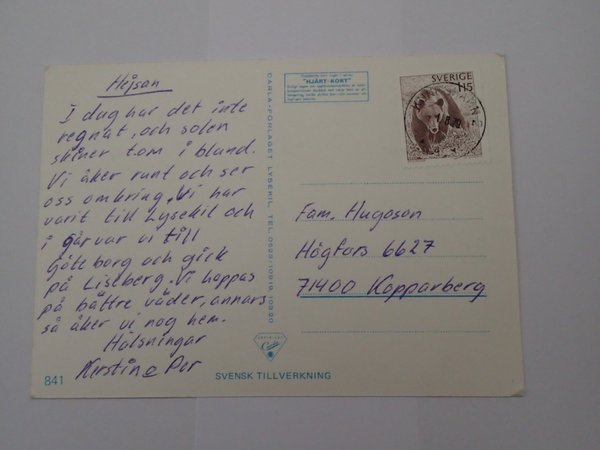 Hejsan
I dag har det inte
regnat, och solen
skiner tom i bland.
Vi åker runt och ser
oss omkring. Vi har
varit till Lysekil och
i går var vi till
Göteborg och gick
på Liseberg. Vi hoppas
på bättre väder, annars
så åker vi nog hem.
Hälsningar
Kerstin o Per
841
CARLA-FÖRLAGET LYSEKIL TEL. 0523/10919, 10920
"HJÄRT-KORT"
SVERIGE
115
Fam. Hugoson
Högfors 6627
71400 Kopparberg
SVENSK TILLVERKNING